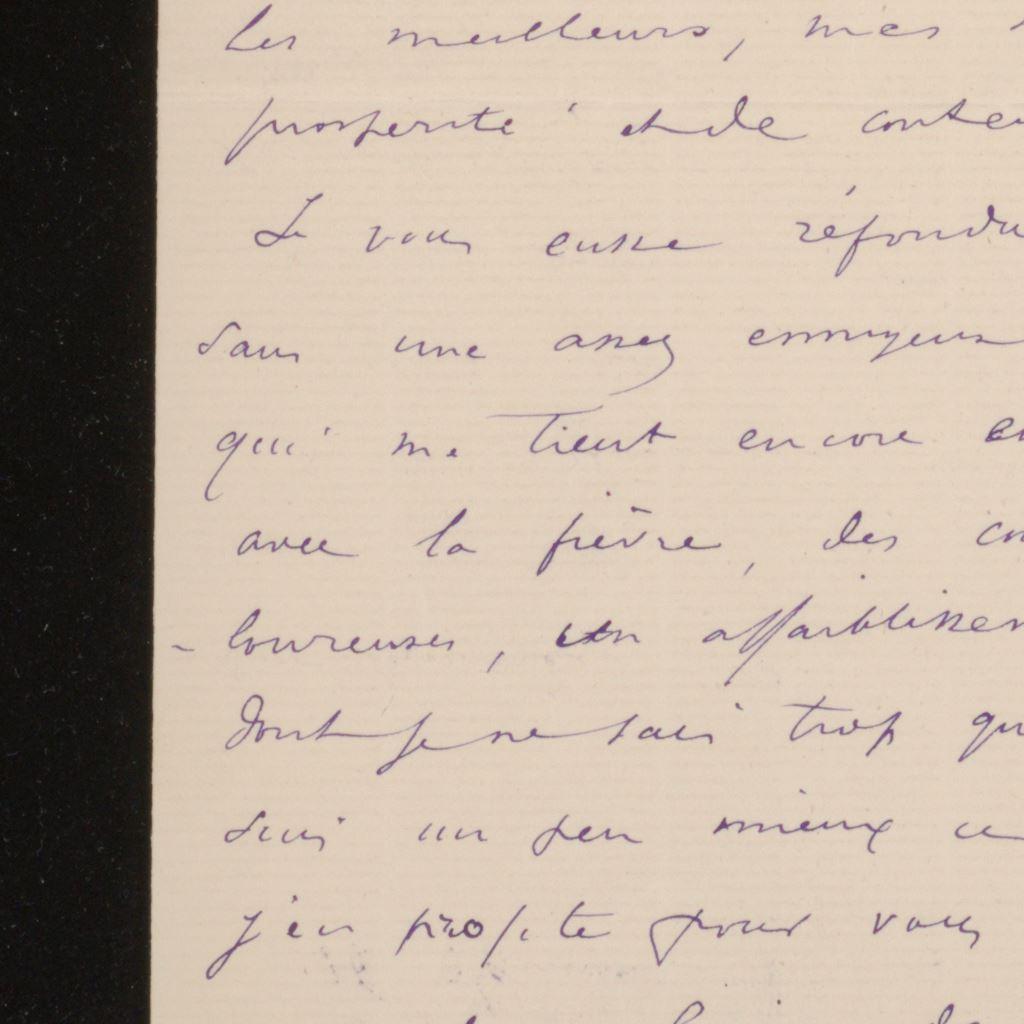 les meilleurs, mes
prospérité et de conten
Je vous eusse répondu
sans une assez ennuyeus
qui me tient encore en
avec la fièvre, des
- loureuses, un affaiblissem
dont je ne sais trop qu
suis un peu mieux ce
j'en profite pour vous